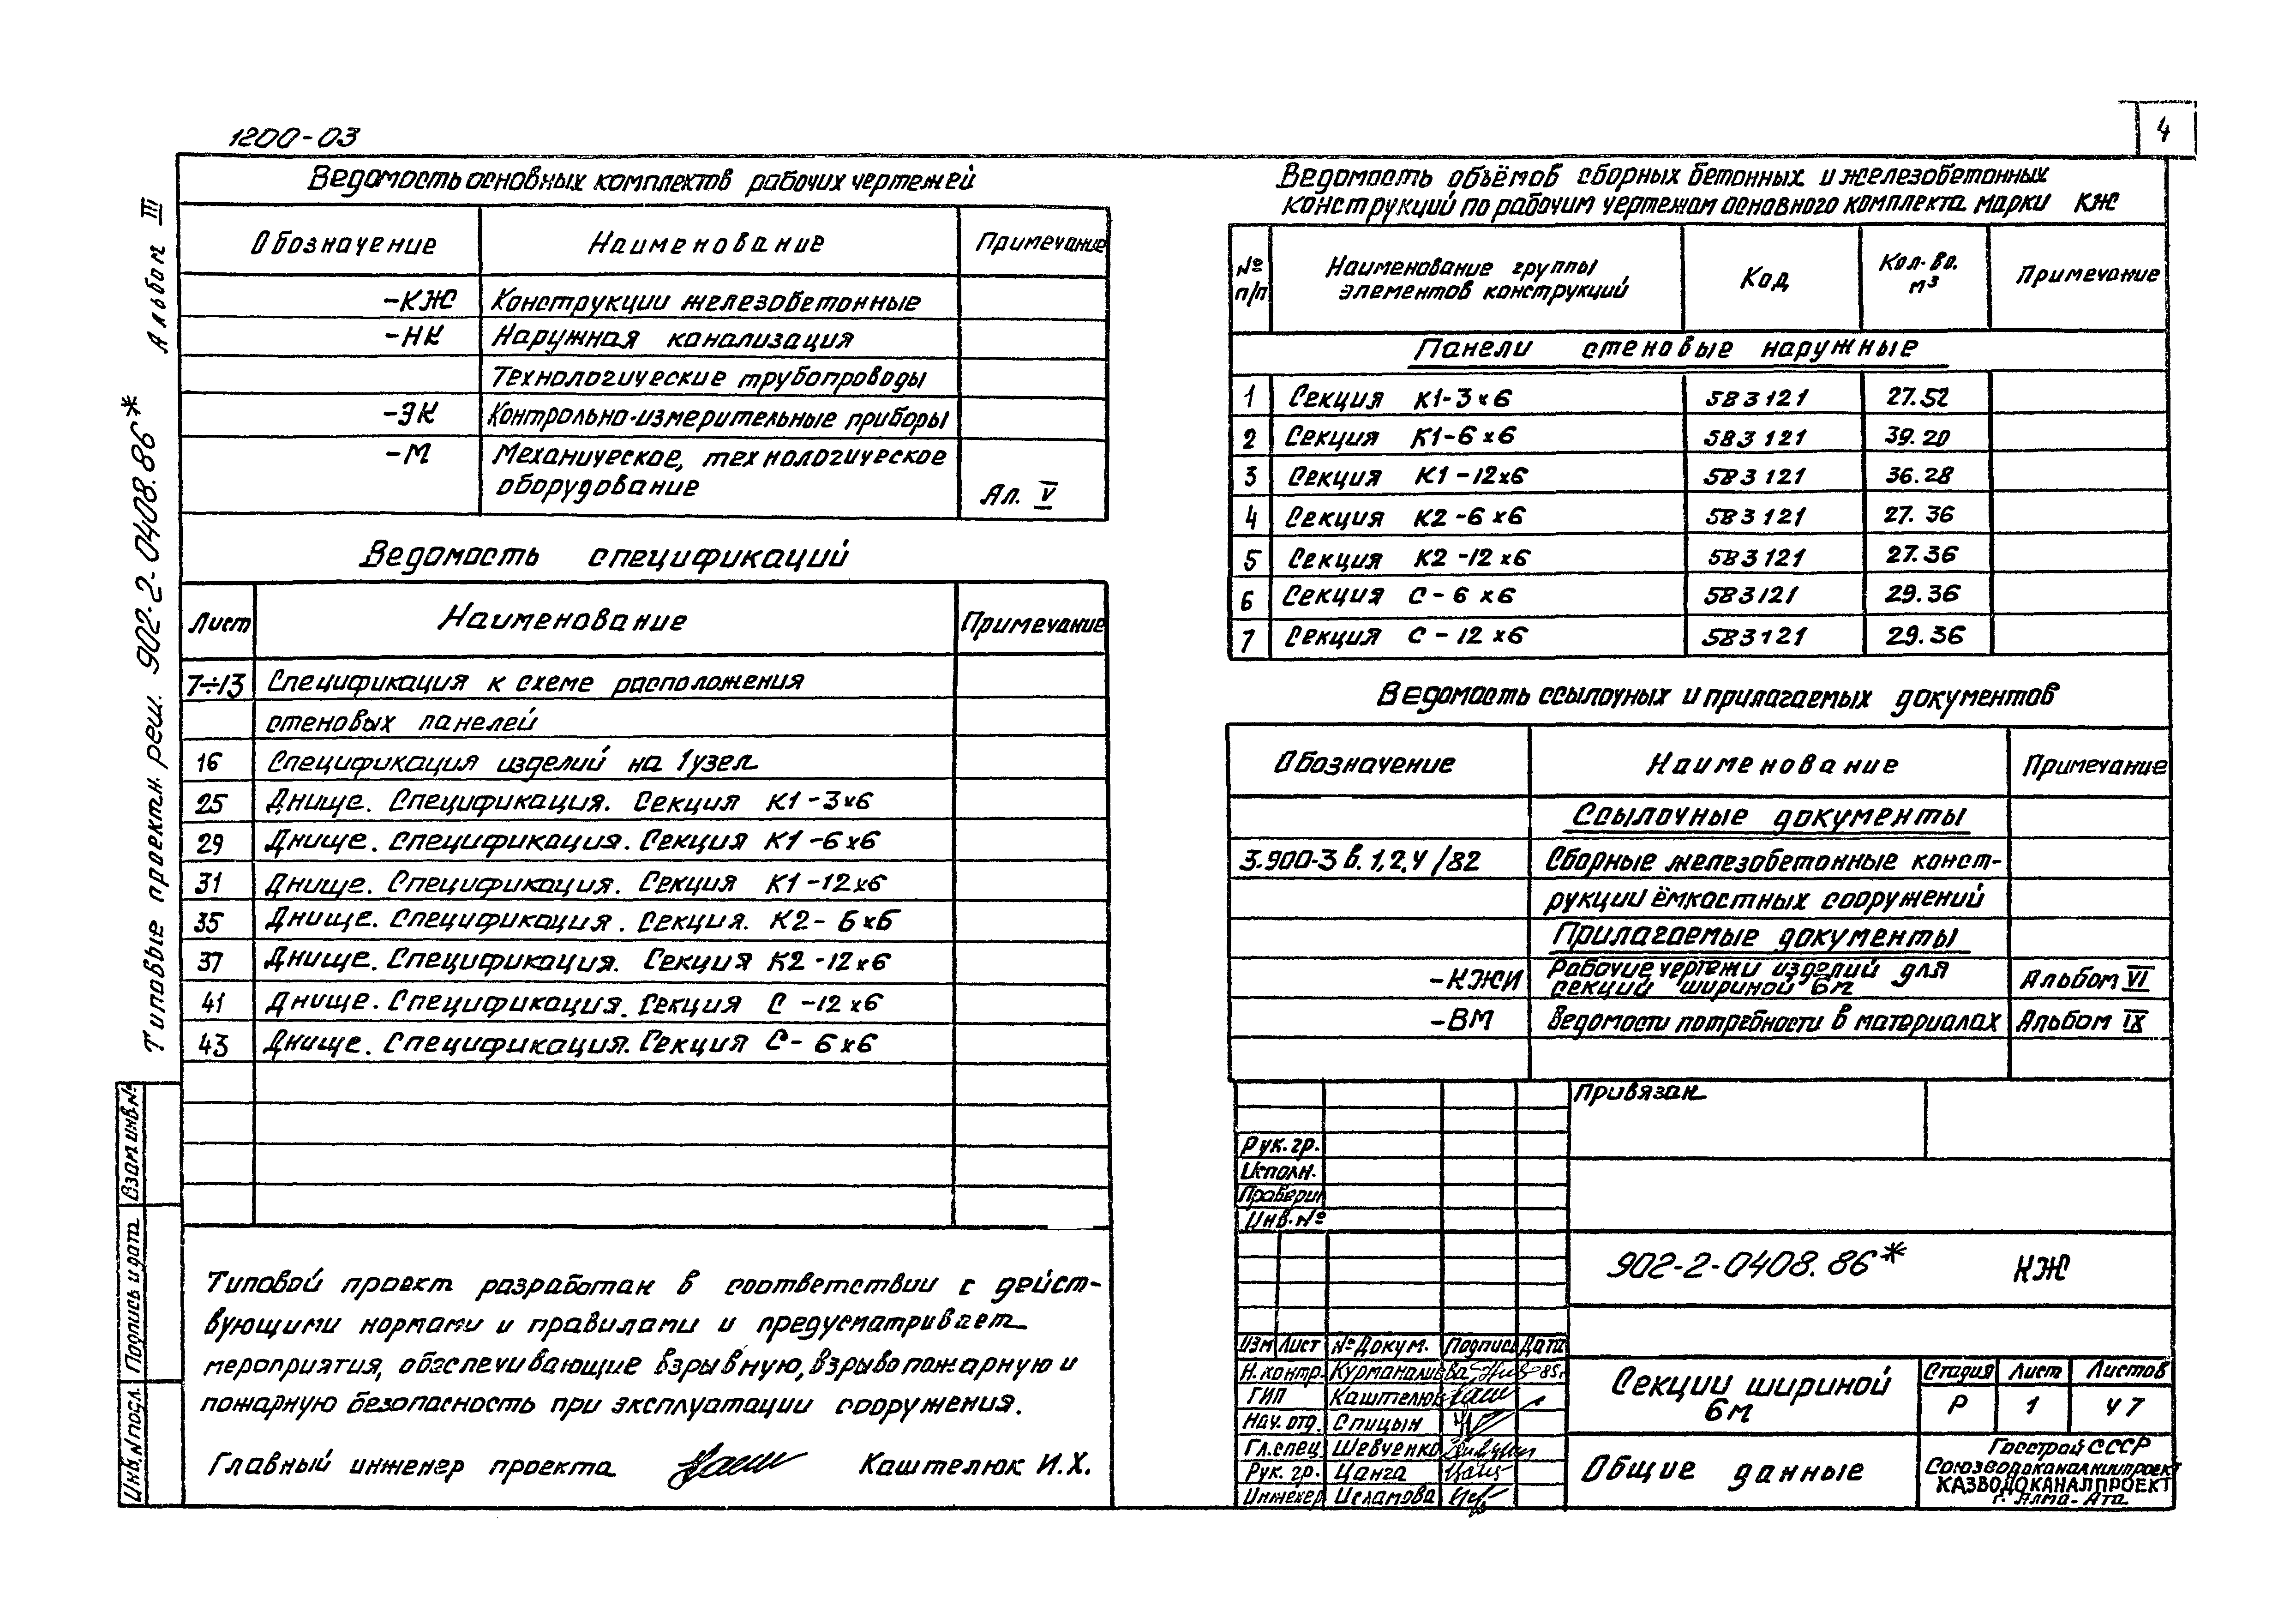 1200-03
4
Альбом III
Типовые проектн. реш. 902-2-0408.86*
Взам инв.№
Подпись и дата
Инв.N подл.
Ведомость основных комплектов рабочих чертежей
Обозначение Наименование Примечание
-КЖ Конструкции железобетонные
-НК Наружная канализация
Технологические трубопроводы
-ЭК Контрольно-измерительные приборы
-М Механическое, технологическое
оборудование Ал. V
Ведомость спецификаций
Лист Наименование Примечание
7÷13 Спецификация к схеме расположения
стеновых панелей
16 Спецификация изделий на 1 узел
25 Днище. Спецификация. Секция К1-3х6
29 Днище. Спецификация. Секция К1-6х6
31 Днище. Спецификация. Секция К1-12х6
35 Днище. Спецификация. Секция. К2-6х6
37 Днище. Спецификация. Секция К2-12х6
41 Днище. Спецификация. Секция С-12х6
43 Днище. Спецификация. Секция С-6х6
Типовой проект разработан в соответствии с дейст-
вующими нормами и правилами и предусматривает
мероприятия, обеспечивающие взрывную, взрывопожарную и
пожарную безопасность при эксплуатации сооружения.
Главный инженер проекта Каштелюк И.Х.
Ведомость объёмов сборных бетонных и железобетонных
конструкций по рабочим чертежам основного комплекта марки КЖ
№ п/п Наименование группы элементов конструкций Код Кол-во. м³ Примечание
Панели стеновые наружные
1 Секция К1-3х6 583121 27.52
2 Секция К1-6х6 583121 39.20
3 Секция К1-12х6 583121 36.28
4 Секция К2-6х6 583121 27.36
5 Секция К2-12х6 583121 27.36
6 Секция С-6х6 583121 29.36
7 Секция С-12х6 583121 29.36
Ведомость ссылочных и прилагаемых документов
Обозначение Наименование Примечание
Ссылочные документы
3.900-3 в. 1,2,4/82 Сборные железобетонные конст-
рукции ёмкостных сооружений
Прилагаемые документы
-КЖИ Рабочие чертежи изделий для
секций шириной 6м Альбом VI
-ВМ Ведомости потребности в материалах Альбом IX
Привязан
Рук. гр.
Исполн.
Проверил
Инв.№
902-2-0408.86* КЖ
Изм Лист № Докум. Подпись Дата
Н.контр. Курманалиева 85г
ГИП Каштелюк
Нач. отд. Спицын
Гл.спец. Шевченко
Рук. гр. Цанга
Инженер Исламова
Секции шириной
6м
Стадия Лист Листов
Р 1 47
Общие данные
Госстрой СССР
Союзводоканалниипроект
КАЗВОДОКАНАЛПРОЕКТ
г. Алма-Ата